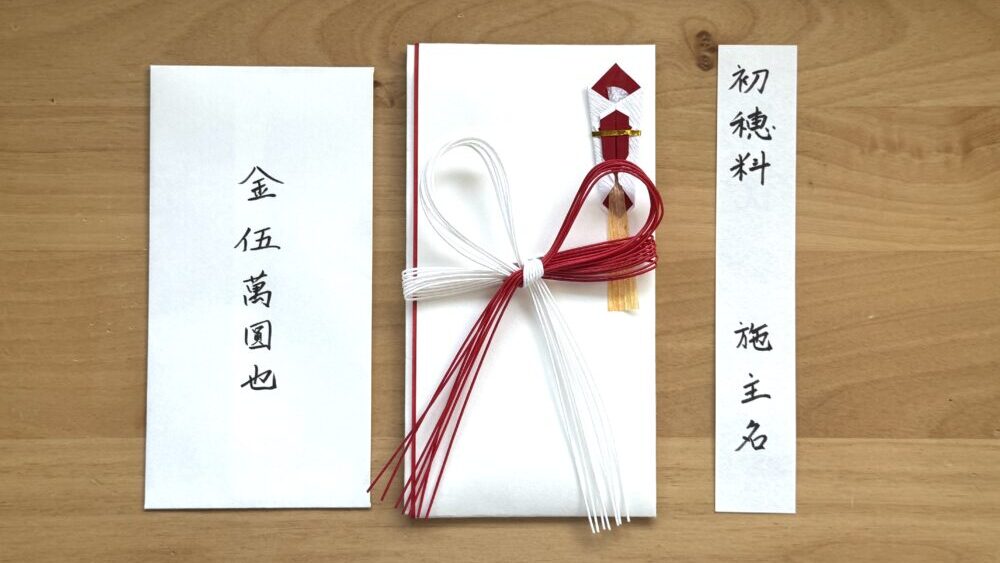 金伍萬圓也
初穂料
施主名